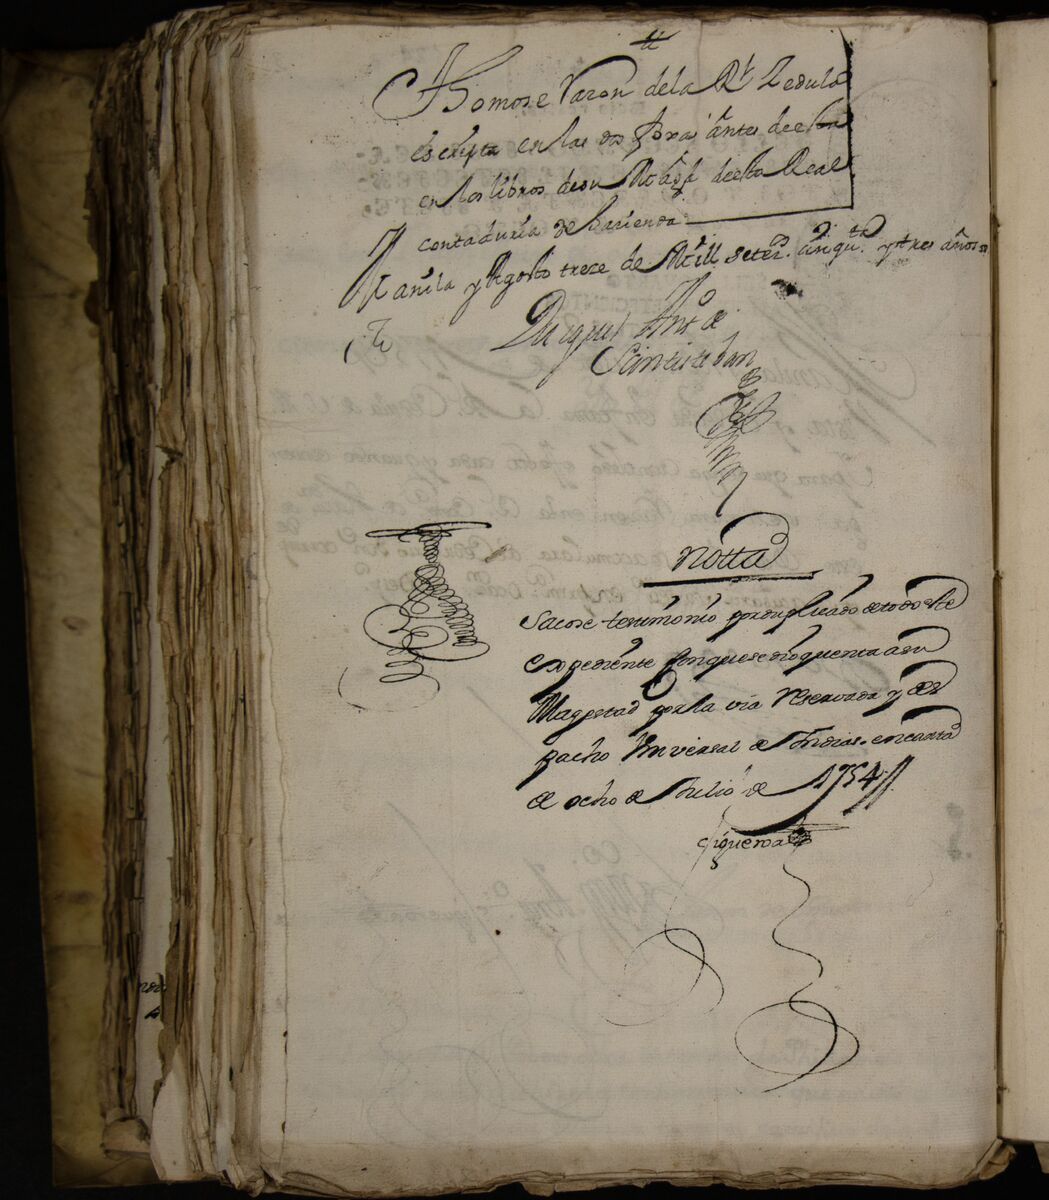 Thomose Razon dela Rl. Zedula
escripta en las dos foxas antes de esta
en los libros de su Magd. de esta Real
contaduria de hacienda
Manila y Agosto treze de Mill setezos. cinqta. y tres años
Miguel Anto. de
Santistevan
notta
Sacose testimonio por duplicado de todo este
expediente con que se dio quenta a su
Magestad por la via reservada y des
pacho Universal de Indias. en carta
de ocho de Julio de 1754
Figueroa